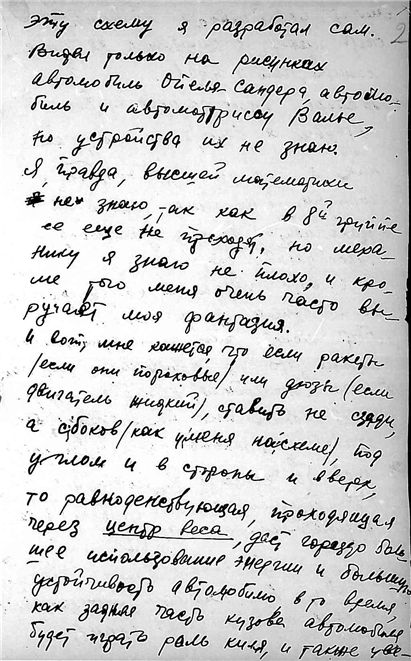 2
эту схему я разработал сам.
Видел только на рисунках
автомобиль Опеля Сандера, автомо-
биль и автомотриссу Валье,
но устройства их не знаю.
Я, правда, высшей математики
не знаю, так как в 8й группе
ее еще не проходят, но меха-
нику я знаю не плохо, и кро-
ме того меня очень часто вы-
ручает моя фантазия.
И вот мне кажется что если ракеты
/если они пороховые/ или дюзы /если
двигатель жидкий/, ставить не сзади,
а с боков /как у меня на схеме/, под
углом и в стороны и вверх,
то равнодействующая, проходящая
через центр веса, даст гораздо боль-
шее использование энергии и большую
устойчивость автомобилю, в то время,
как задняя часть кузова автомобиля
будет играть роль киля, и также уве-